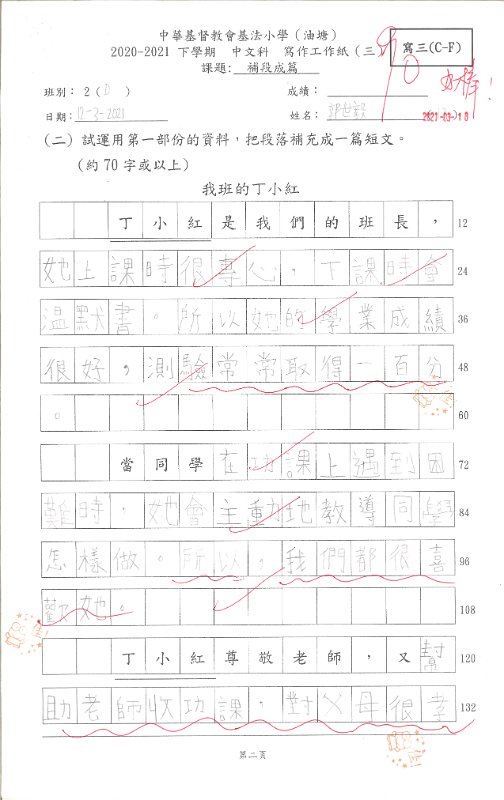 中華基督教會基法小學（油塘）
2020-2021 下學期 中文科 寫作工作紙（三）
寫三(C-F)
課題：補段成篇
班別：2（D）
成績：
日期：12-3-2021
姓名：
2021-03-18
（二）試運用第一部份的資料，把段落補充成一篇短文。
（約70字或以上）
我班的丁小紅
丁小紅是我們的班長， 12
她上課時很專心，下課時會 24
溫默書。所以她的學業成績 36
很好，測驗常常取得一百分 48
。 60
當同學在功課上遇到困 72
難時，她會主動地教導同學 84
怎樣做。所以，我們都很喜 96
歡她。 108
丁小紅尊敬老師，又幫 120
助老師收功課，對父母很孝 132
第二頁